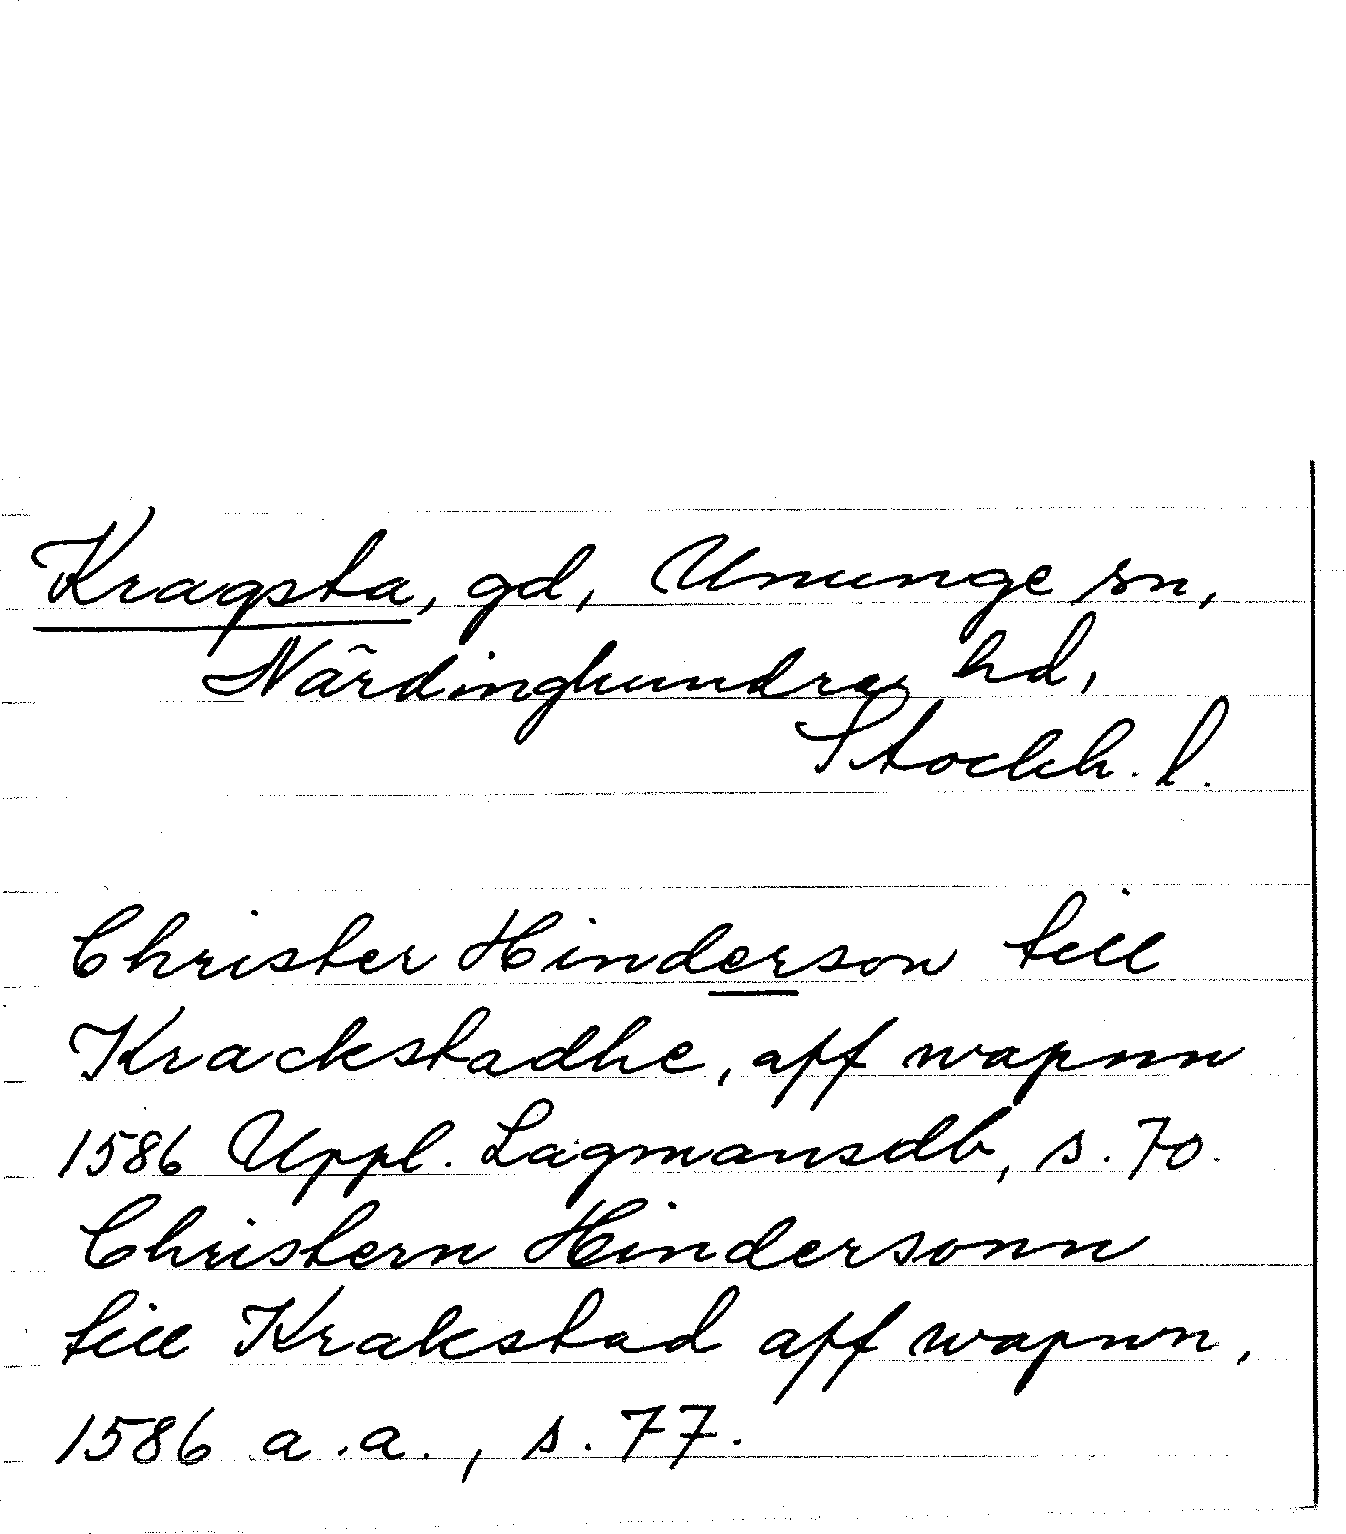 Kragsta, gd, Ununge sn,
Närdinghundra hd,
Stockh. l.
Christer Hinderson till
Krackstadhe, aff wapnn
1586 Uppl. Lagmansdb, s. 70.
Christern Hindersonn
till Krakstad aff wapnn,
1586 a.a., s. 77.